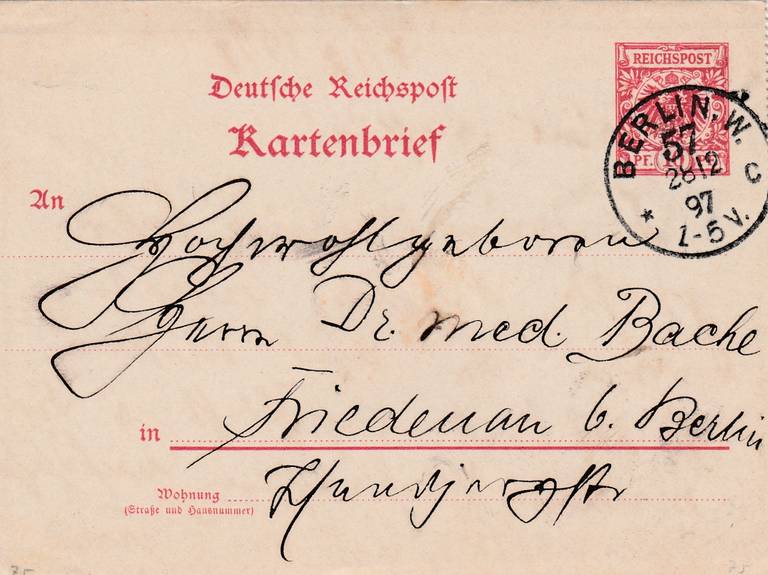 Deutsche Reichspost
Kartenbrief
REICHSPOST
10 PF.
BERLIN. W.
57
28 12
97
1-5 V.
* C
An
Hochwohlgeboren
Herrn Dr. med. Bache
in Friedenau b. Berlin
Wohnung
(Straße und Hausnummer)
75
75